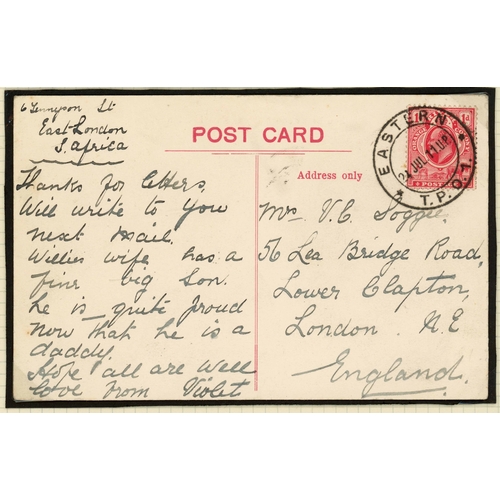 6 Tennyson St
East London
S. Africa
POST CARD
Address only
Thanks for letters.
Will write to you
next mail.
Willies wife has a
fine big Son.
he is quite proud
now that he is a
daddy.
Hope all are well
love from Violet
Mrs V. C.
56 Lea Bridge Road,
Lower Clapton,
London. N.E
England.
EASTERN
JUL 11
T.P.O.
ORANGE
POST
1d